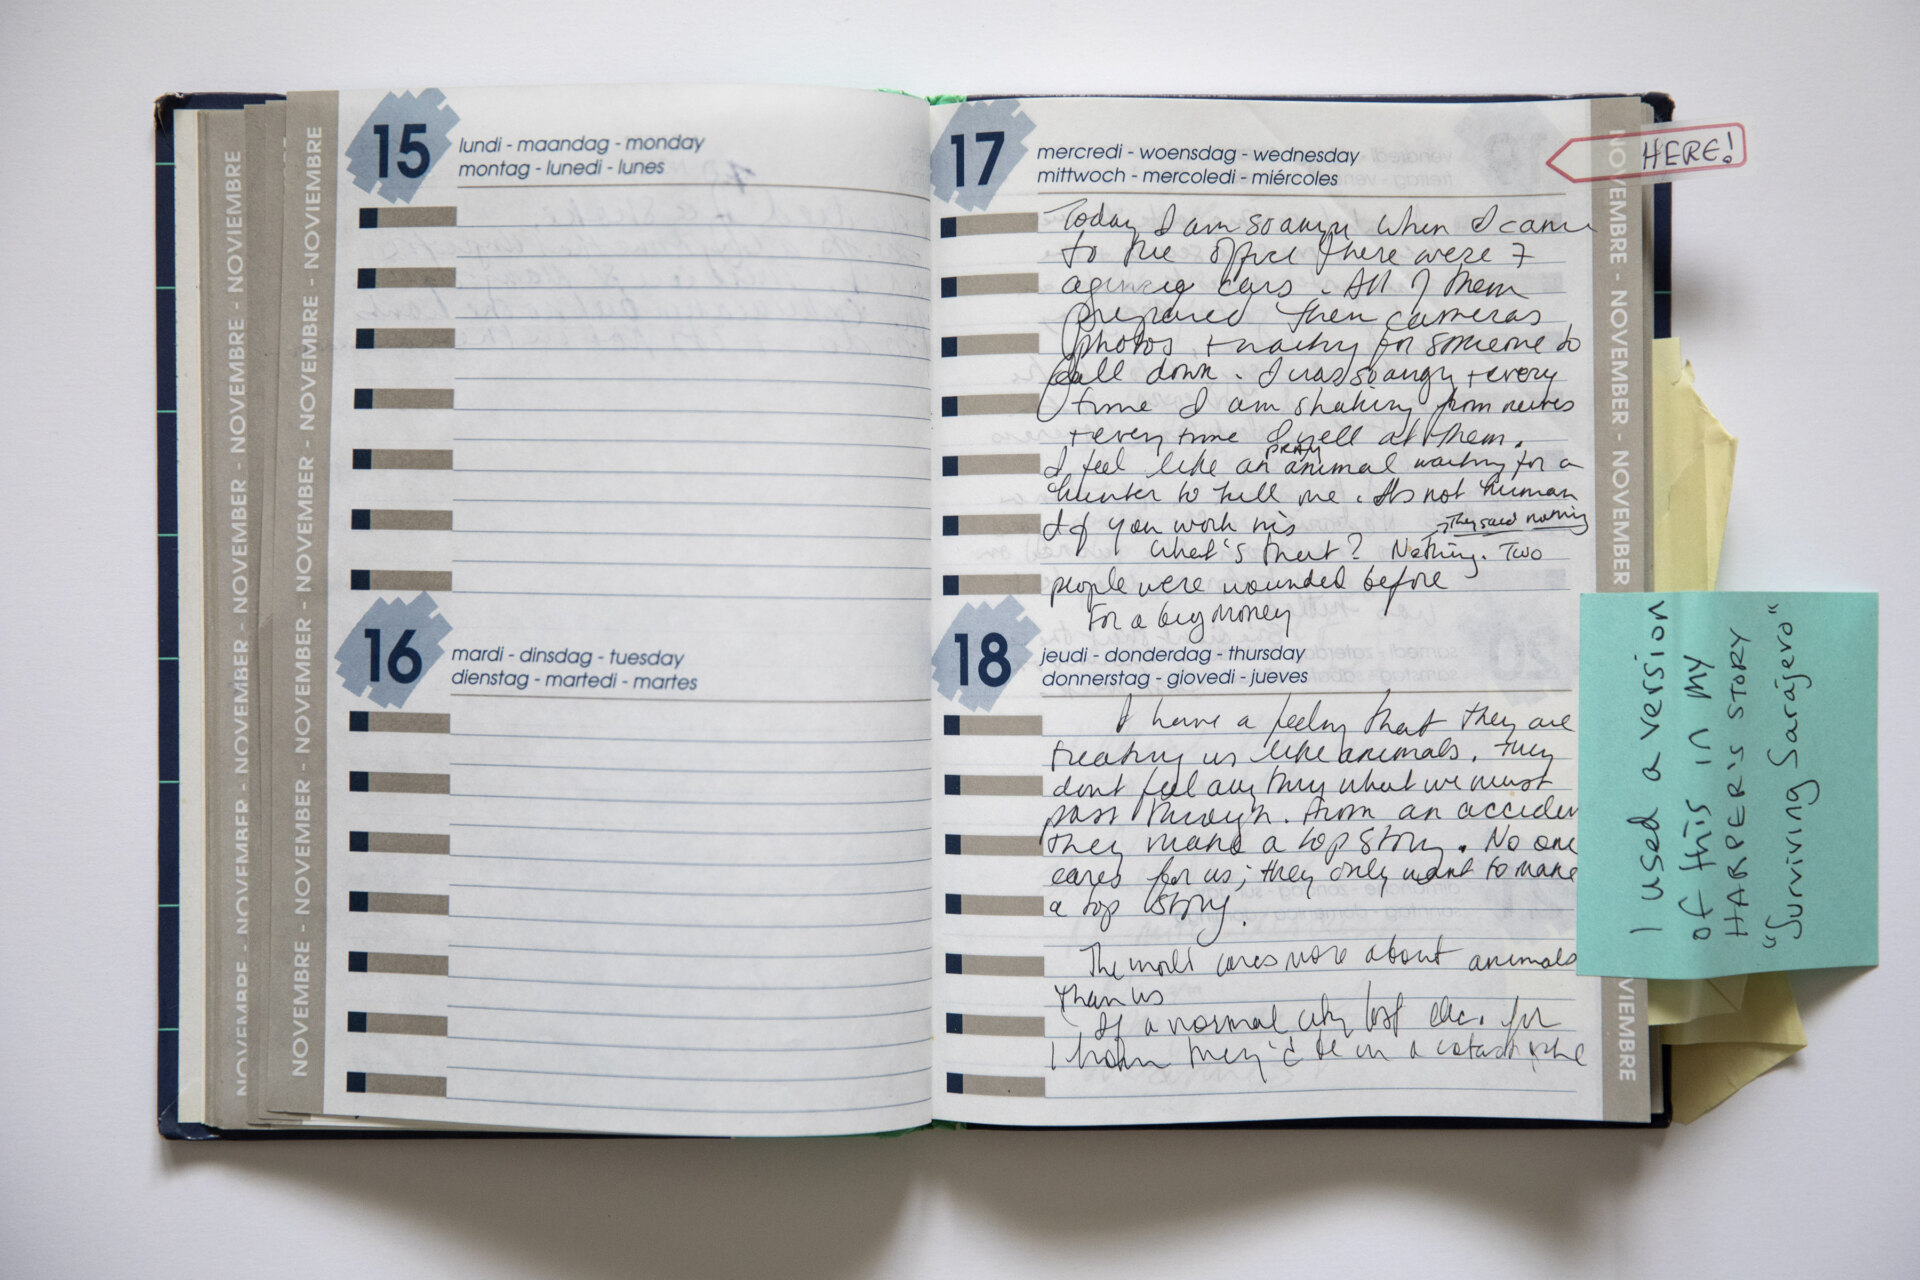 NOVEMBRE - NOVEMBER - NOVEMBER - NOVEMBER - NOVEMBRE - NOVIEMBRE
NOVEMBRE - NOVEMBER - NOVEMBER - NOVEMBER - NOVEMBRE - NOVIEMBRE
15
lundi - maandag - monday
montag - lunedi - lunes
16
mardi - dinsdag - tuesday
dienstag - martedi - martes
17
mercredi - woensdag - wednesday
mittwoch - mercoledi - miércoles
Today I am so angry when I came
to the office there were 7
agency cars. All of them
prepared their cameras
photos + waiting for someone to
fall down. I was so angry + every
time I am shaking from nerves
+ every time I yell at them.
I feel like an PRAY animal waiting for a
hunter to kill me. Its not human
If you work his
They said nothing
What's that? Nothing. Two
people were wounded before
For a big money
18
jeudi - donderdag - thursday
donnerstag - giovedi - jueves
I have a feeling that they are
treating us like animals. They
dont feel any thing what we must
pass through. From an acciden
they make a top story. No one
cares for us; they only want to make
a top story.
The world cares more about animals
than us
If a normal city lost elec. for
1 hour they'd be in a catastrophe
HERE!
NOVEMBRE - NOVEMBER - NOVEMBER
VIEMBRE
I used a version
of this in my
HARPER'S STORY
"Surviving Sarajevo"